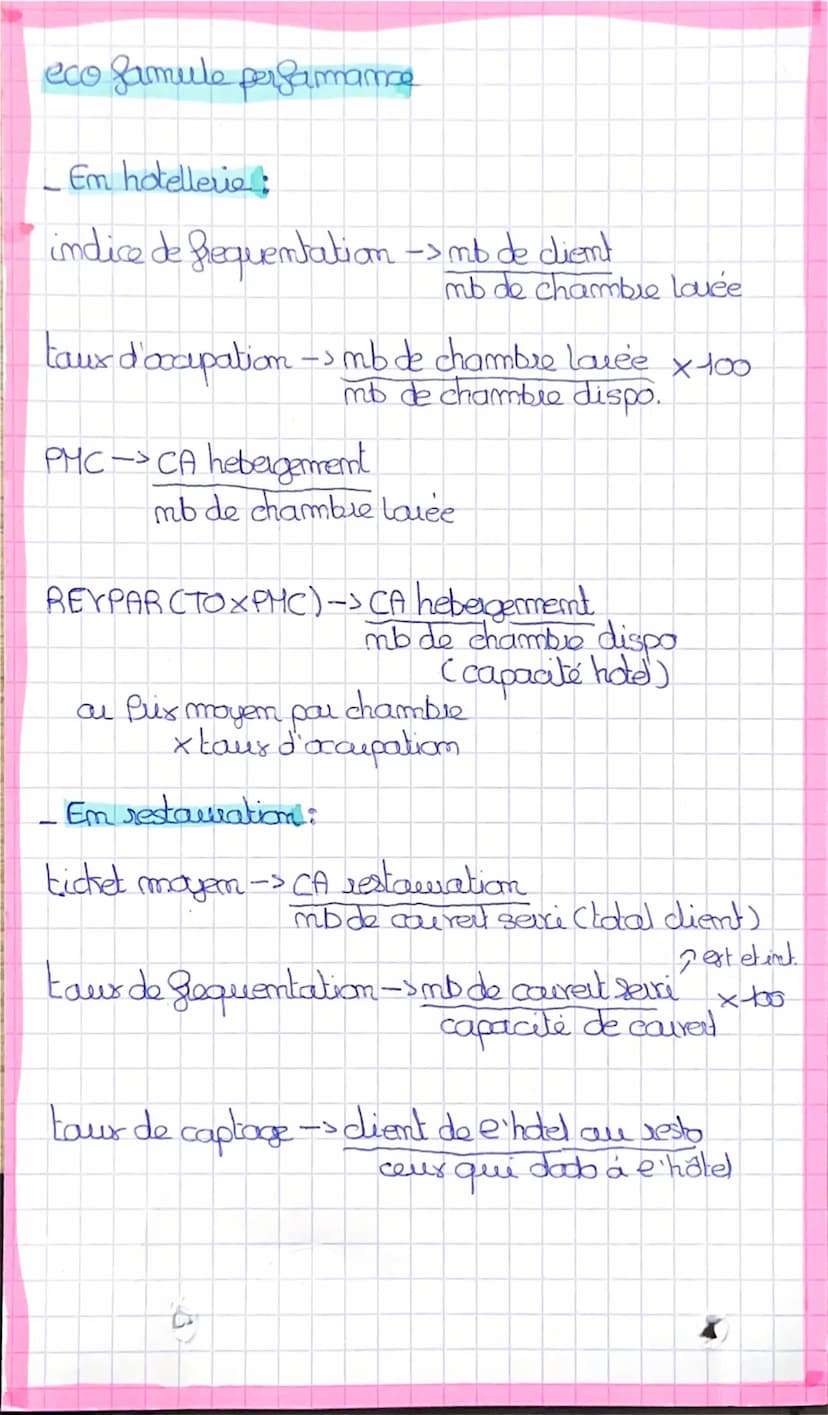 eco formule performance
- En hotellerie :
indice de frequentation -> nb de client
nb de chambre louée
taux d'occupation -> nb de chambre louée x 100
nb de chambre dispo.
PMC -> CA hebergement
nb de chambre louée
REVPAR (TO x PMC) -> CA hebergement
nb de chambre dispo
(capacité hotel)
ou prix moyen par chambre
x taux d'occupation
- En restauration :
ticket moyen -> CA restauration
nb de couvert servi (total client)
↗ ext et int.
taux de frequentation -> nb de couvert servi x 100
capacité de couvert
taux de captage -> client de l'hotel au resto
ceux qui dodo à l'hôtel